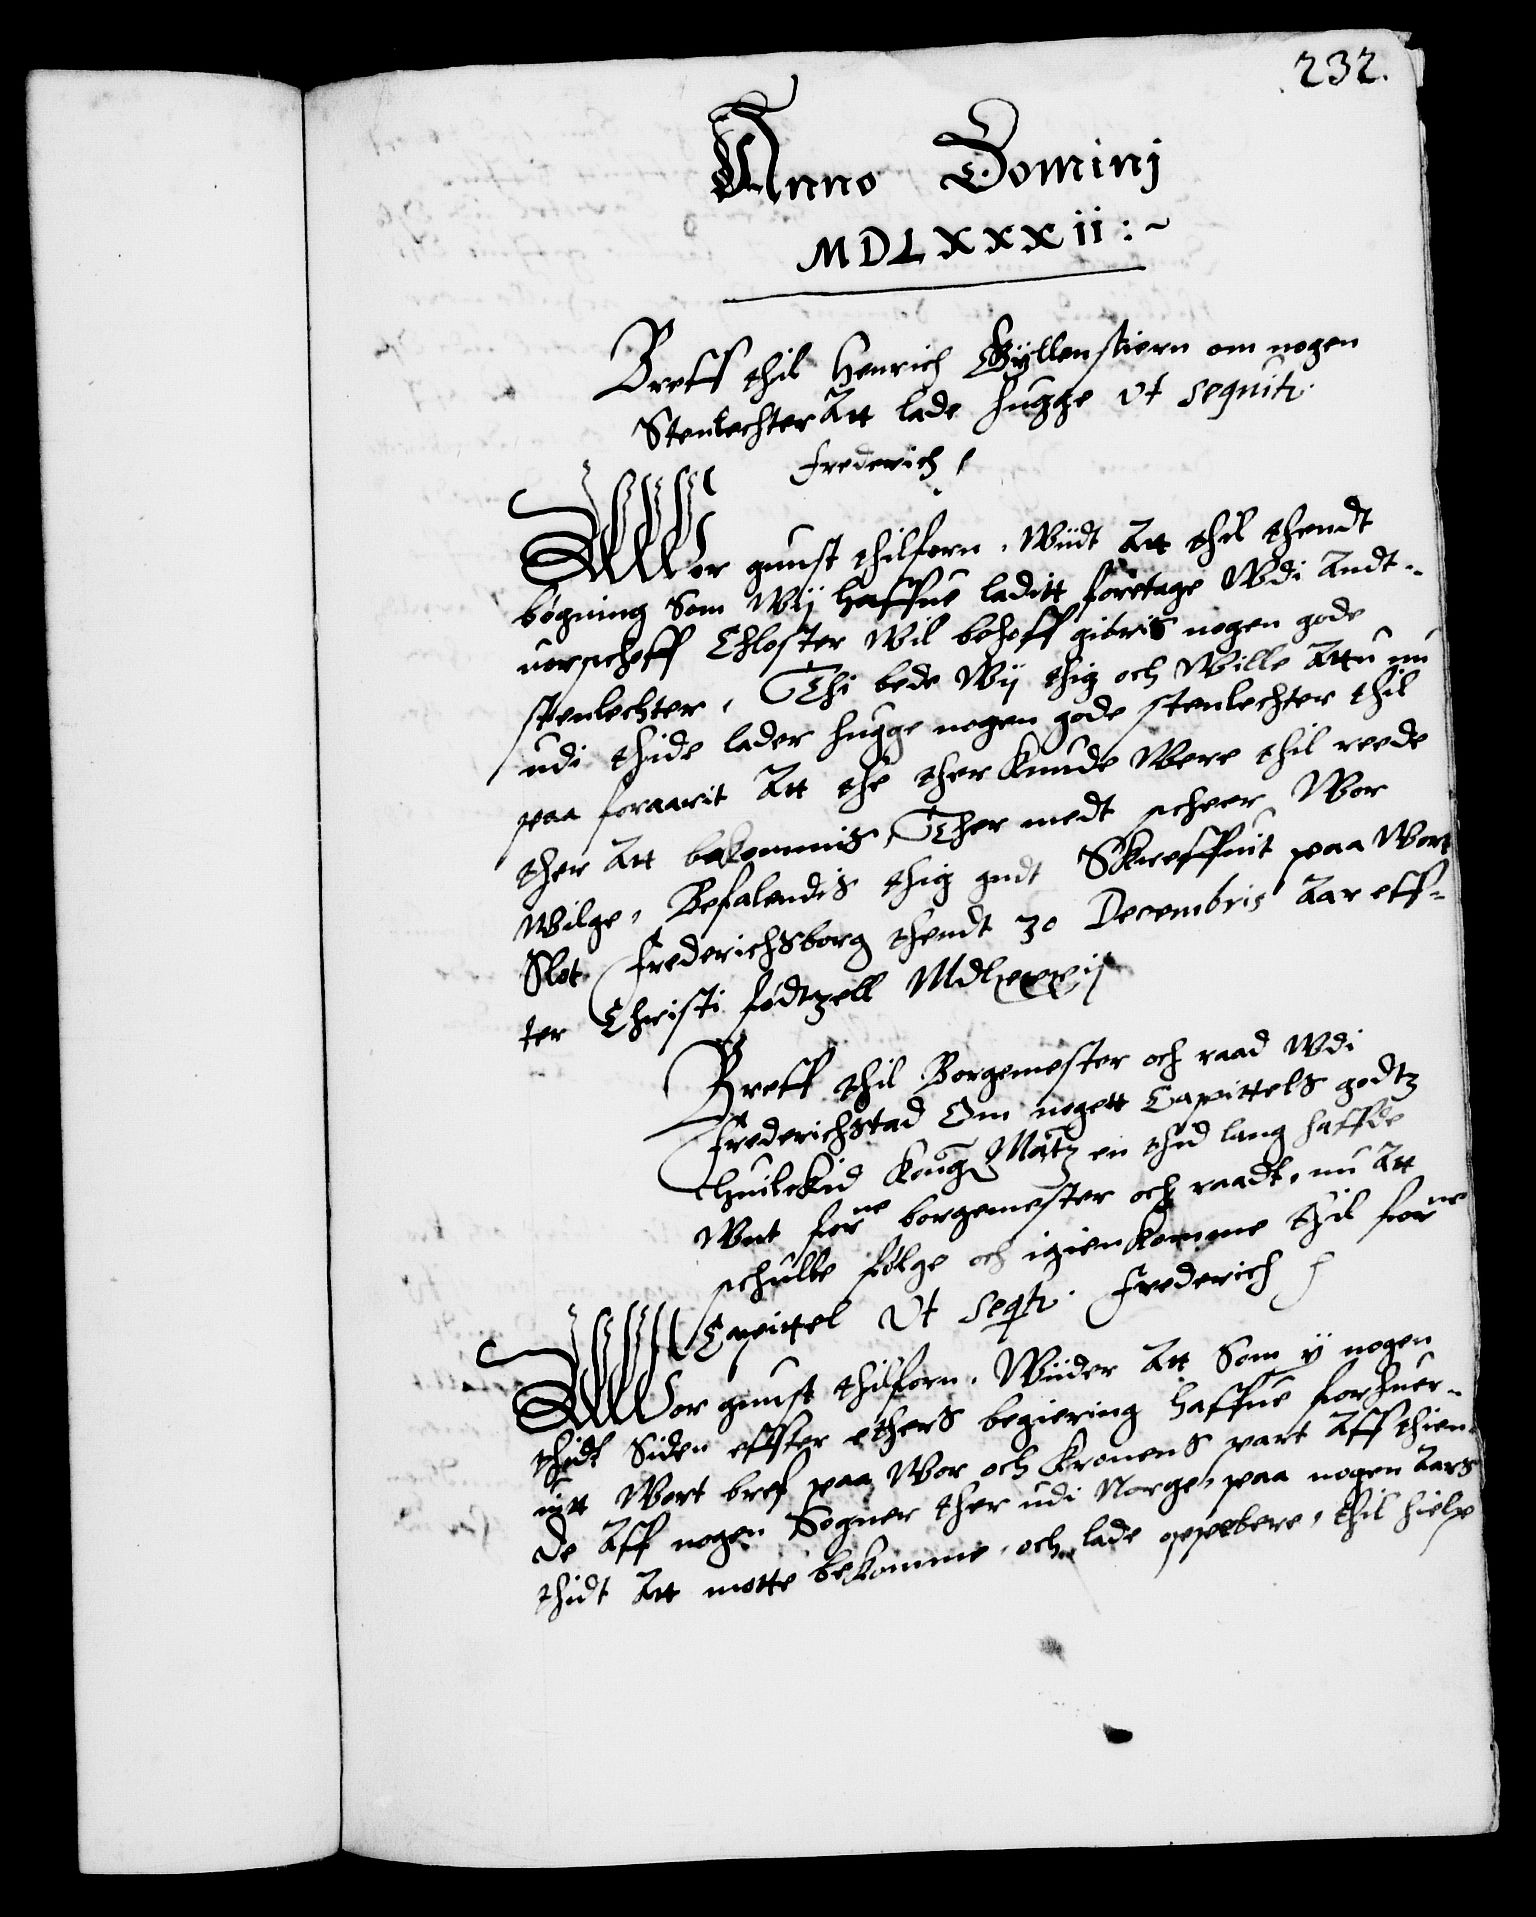 232.
Anno Dominj
MDLXXXii:~
Breff thil Henrich Gyllenstiern om nogen
Stenlechter Att lade hugge Vt sequitr.
Frederich
Wor gunst thilforn, Wiidt Att thil thendt
bögning Som Wij haffue laditt foretage Wdi Andt-
uorschoff Chloster Wil behoff giöris nogen gode
stenlechter, Thi bede Wij thig och Wille Attu nu
udi thide lader hugge nogen gode stenlechter thil
paa foraarit Att the ther kunde Were thil reede
ther Att bekommis, Ther medt scheer Wor
Wilge, Befalendis thig gudt Skreffuit paa Wort
Slot Frederichsborg thendt 30 Decembris Aar eff-
ter Christi födtzell Mdlxxxij
Breff thil Borgemester och raad Wdi
Frederichstad Om nogett Capittels godtz
Huilckid Kong Matz en thid lang haffde
Wnt forne borgemester och raadt, nu Att
schulle fölge och igien komme thil forne
Capittel Vt seqtr. Frederich
Wor gunst thilforn, Wiider Att Som y nogen
thidt Siden effter ethers begiering haffue forhuer-
uitt Wort bref paa Wor och Kronens part Aff thien-
de Aff nogen Sogner ther udi Norge, paa nogen Aars
thidt Att motte bekomme, och lade oppebere, thil hielp